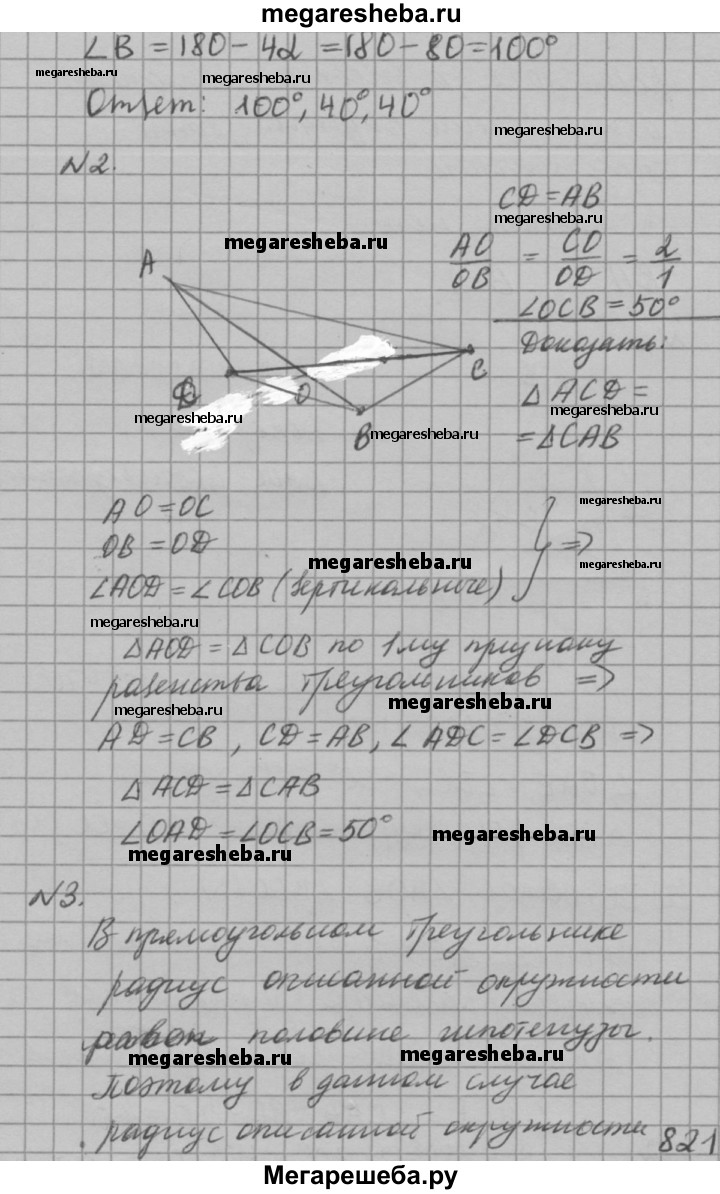 megaresheba.ru
∠B = 180 - 4α = 180 - 80 = 100°
megaresheba.ru megaresheba.ru
Ответ: 100°, 40°, 40°
megaresheba.ru
№2.
CD = AB
megaresheba.ru
megaresheba.ru
AO/OB = CO/OD = 2/1
A
∠OCB = 50°
Доказать:
C
△ACD =
O
megaresheba.ru megaresheba.ru
B megaresheba.ru
= △CAB
AO = OC
megaresheba.ru
OB = OD
megaresheba.ru
=> megaresheba.ru
∠AOD = ∠COB (вертикальные)
megaresheba.ru
△AOD = △COB по 1му признаку
равенства треугольников =>
megaresheba.ru megaresheba.ru
AD = CB, CD = AB, ∠ADC = ∠DCB =>
△ACD = △CAB
∠OAD = ∠OCB = 50°
megaresheba.ru
megaresheba.ru
№3.
В прямоугольном треугольнике
радиус описанной окружности
равен половине гипотенузы.
megaresheba.ru megaresheba.ru
Поэтому в данном случае
радиус описанной окружности
821
Мегарешеба.ру